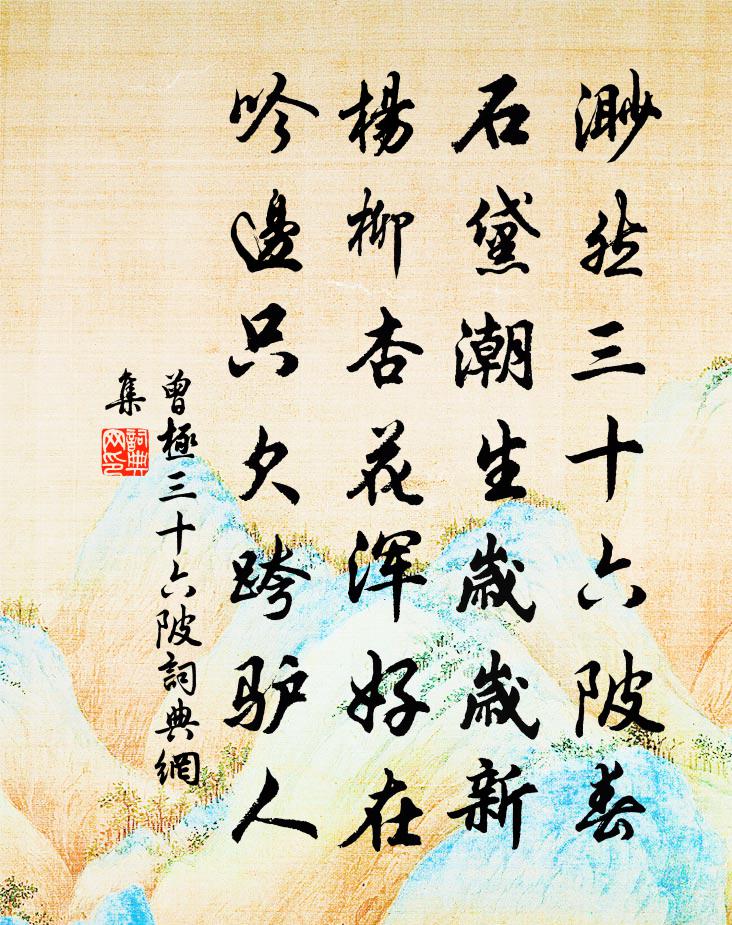 渺然三十六陂春
石黛潮生歲歲新
楊柳杏花浑好在
吟邊只欠跨驴人
曾極三十六陂詞典網
集
詞典网印